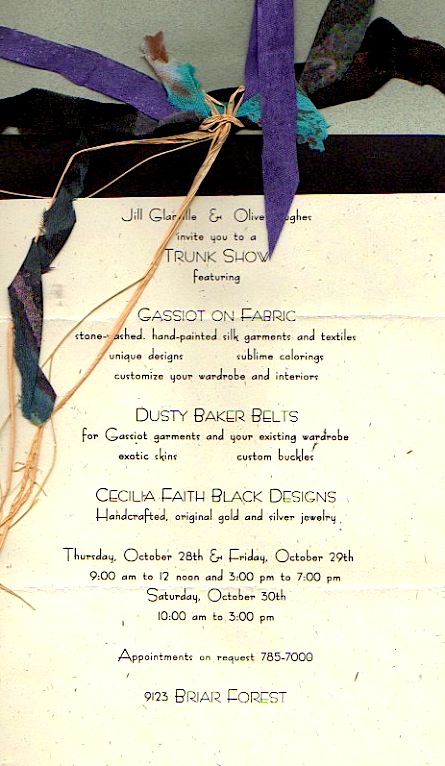 Jill Glanville & Olive Hughes
invite you to a
TRUNK SHOW
featuring
GASSIOT ON FABRIC
stone-washed, hand-painted silk garments and textiles
unique designs sublime colorings
customize your wardrobe and interiors
DUSTY BAKER BELTS
for Gassiot garments and your existing wardrobe
exotic skins custom buckles
CECILIA FAITH BLACK DESIGNS
Handcrafted, original gold and silver jewelry
Thursday, October 28th & Friday, October 29th
9:00 am to 12 noon and 3:00 pm to 7:00 pm
Saturday, October 30th
10:00 am to 3:00 pm
Appointments on request 785-7000
9123 BRIAR FOREST